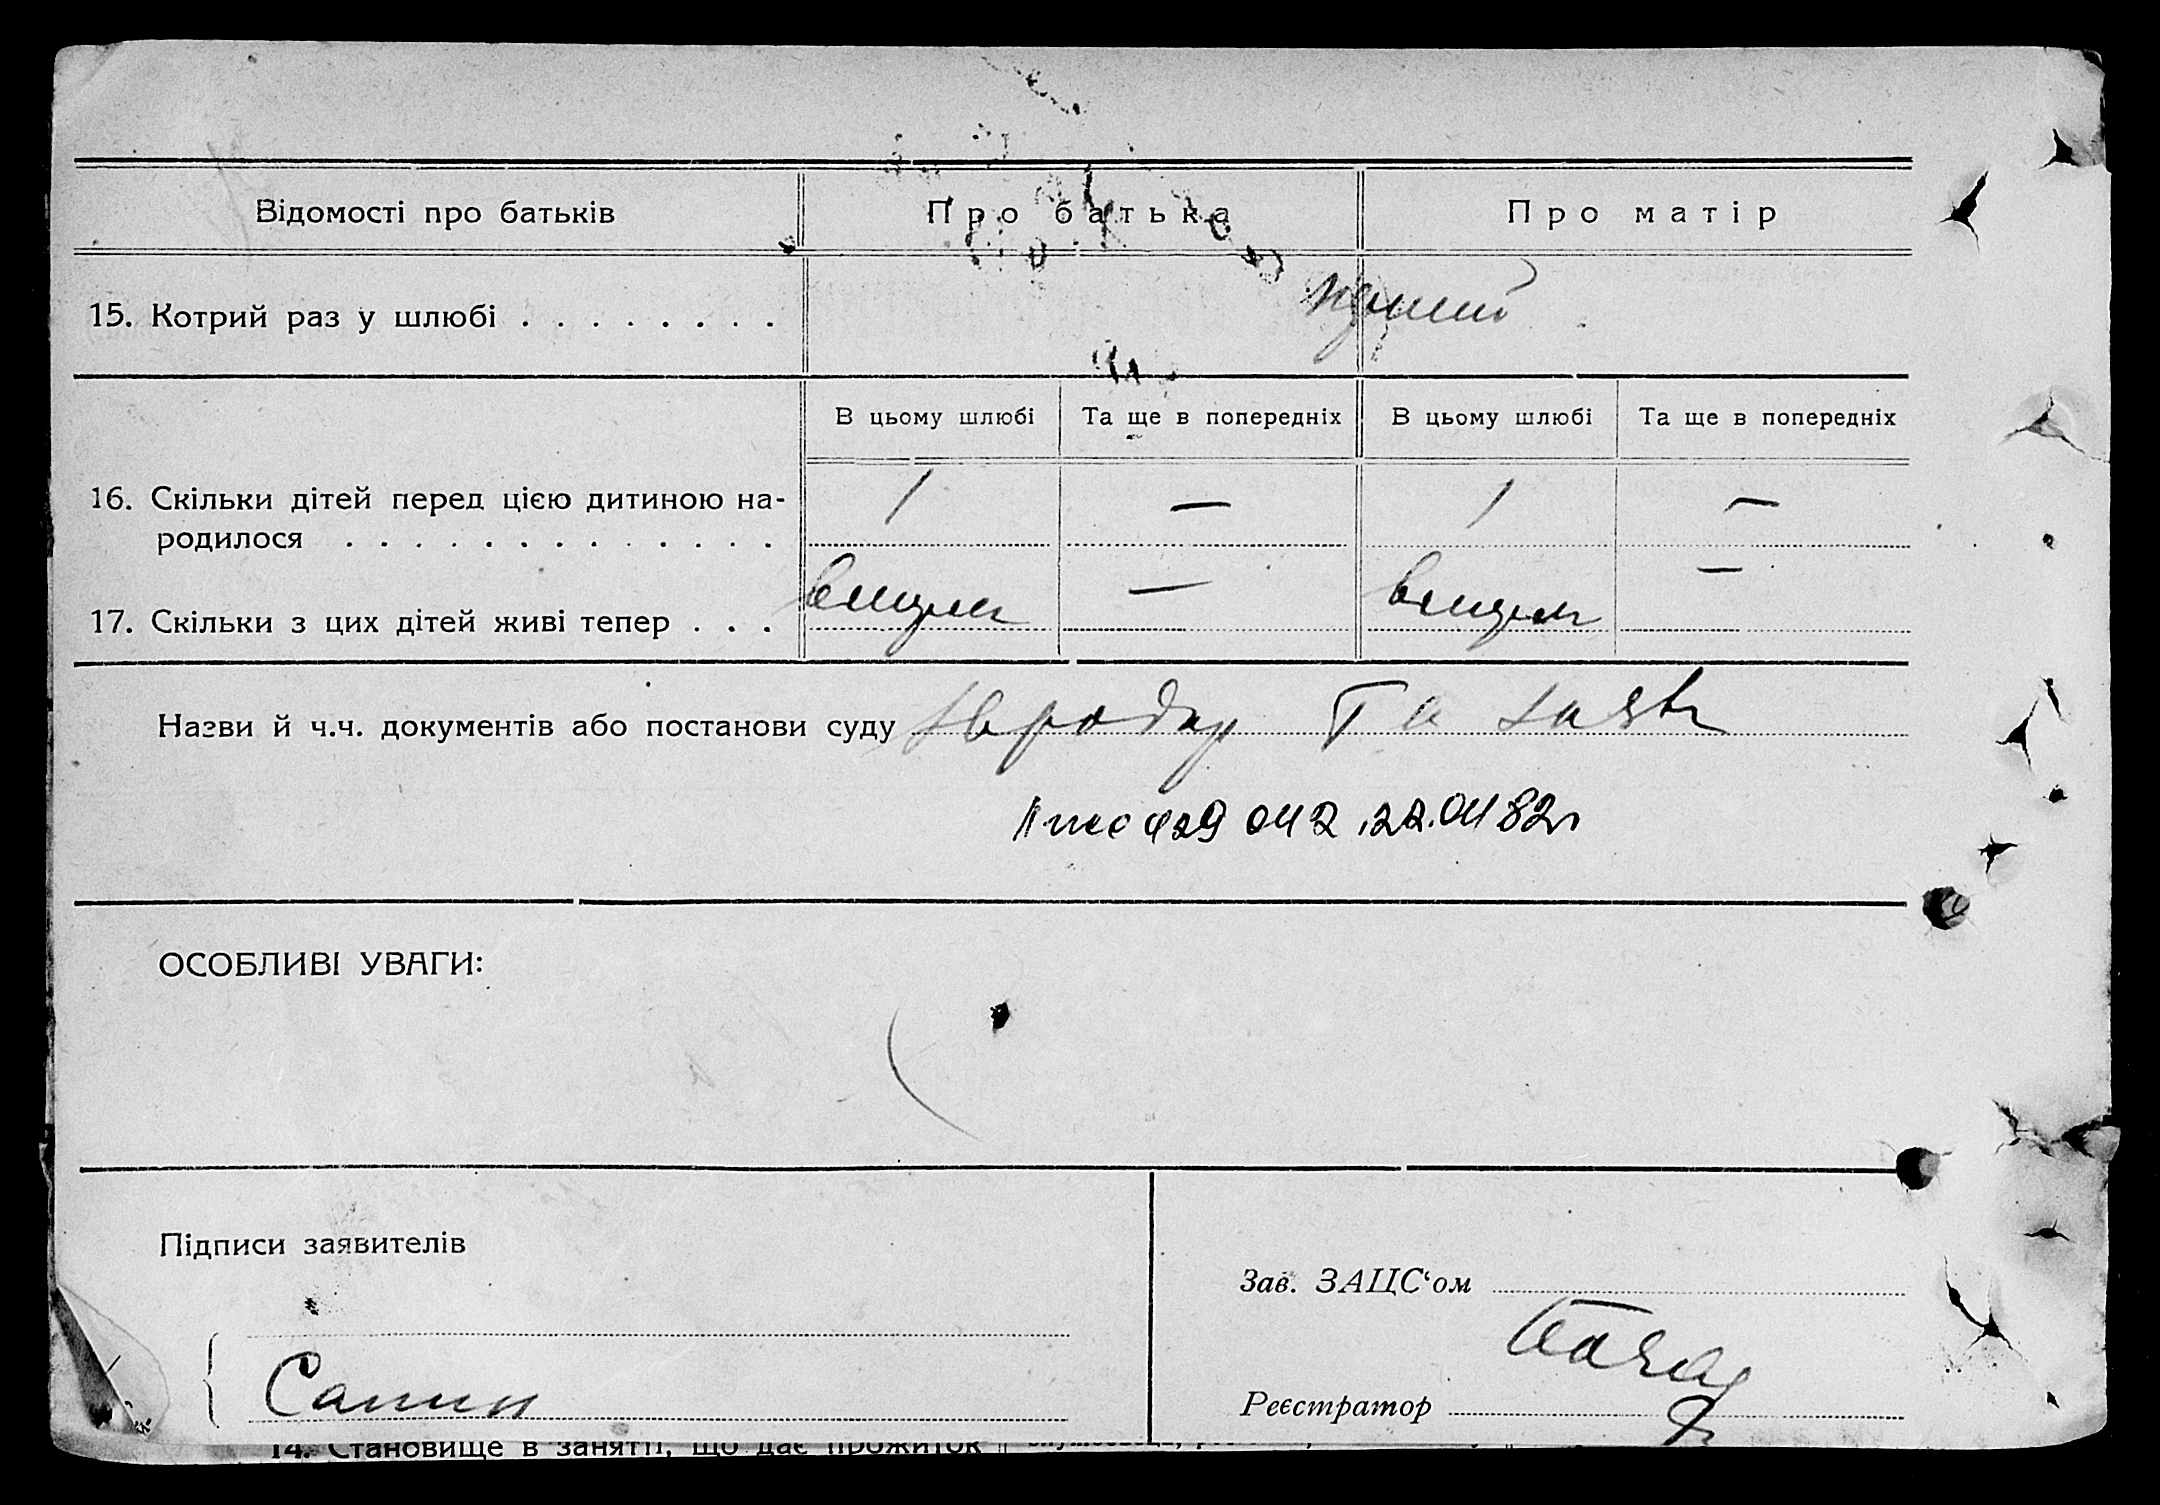 Відомості про батьків Про батька Про матір
15. Котрий раз у шлюбі . . . . . . . . перший
В цьому шлюбі Та ще в попередніх В цьому шлюбі Та ще в попередніх
16. Скільки дітей перед цією дитиною на- 1 — 1 —
родилося . . . . . . . . . . . . .
17. Скільки з цих дітей живі тепер . . . — —
Назви й ч.ч. документів або постанови суду та
429 042 22.04 82г
ОСОБЛИВІ УВАГИ:
Підписи заявителів
Зав. ЗАЦС‘ом
Реєстратор
14. Становище в занятті, що дає прожиток